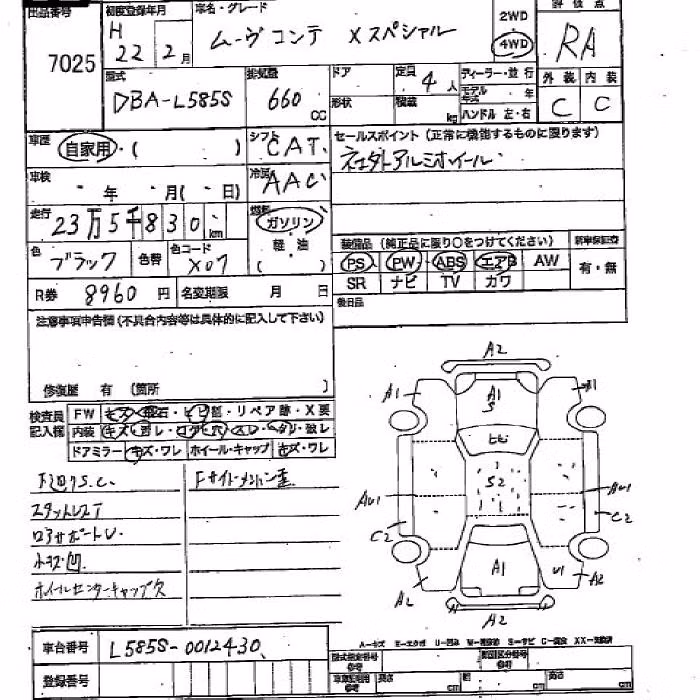 出品番号 初度登録年月 車名・グレード 2WD 評価点
7025 H 22年 2月 ムーヴ コンテ Xスペシャル 4WD RA
型式 排気量 ドア 定員 4人 ディーラー・並行 外装 内装
DBA-L585S 660 CC 形状 積載 kg モデル年式 年 C C
ハンドル 左・右
車歴 自家用・( ) シフト CAT. セールスポイント (正常に機能するものに限ります)
車検 ・ 年 ・ 月(・ 日) 冷房 AAC 社外アルミホイール
走行 23万5千830km 燃料 ガソリン
軽油
( )
色 ブラック 色替 色コード X07
装備品 (純正品に限り○をつけてください) 新車保証書
PS PW ABS エアB AW 有・無
SR ナビ TV カワ
R券 8960円 名変期限 月 日
後日品
注意事項申告欄 (不具合内容等は具体的に記入して下さい)
修復歴 有 (箇所 )
検査員記入欄 FW キズ・飛石・ヒビ・リペア跡・X要
内装 キズ・スレ・コゲ穴・
ドアミラー キズ・ワレ ホイール・キャップ キズ・ワレ
下廻りS.C.
スタッドレスT
ロアサポートU.
小キズ凹
ホイールセンターキャップ欠
A2
A1 A1
S
ヒビ
S2
AU1
C2
A2
A1
U1
AU1
C2
A2
A2
車台番号 L585S-0012430
登録番号
A-キズ E-エクボ U-凹み S-サビ C-腐食 XX-交換済
型式指定番号 参考 類別区分番号 参考
長さ cm 幅 cm 高さ cm